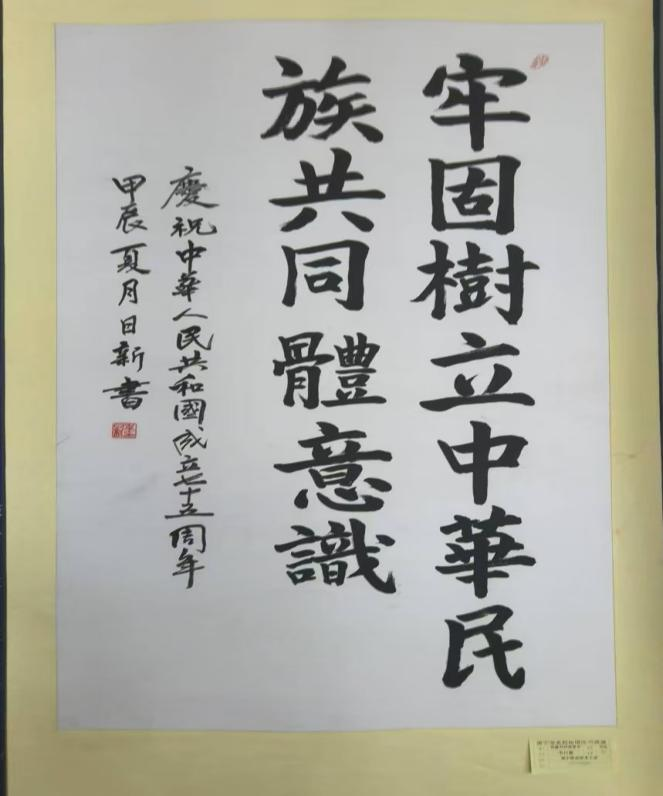 牢固樹立中華民
族共同體意識
慶祝中華人民共和國成立七十五周年
甲辰夏月日新書